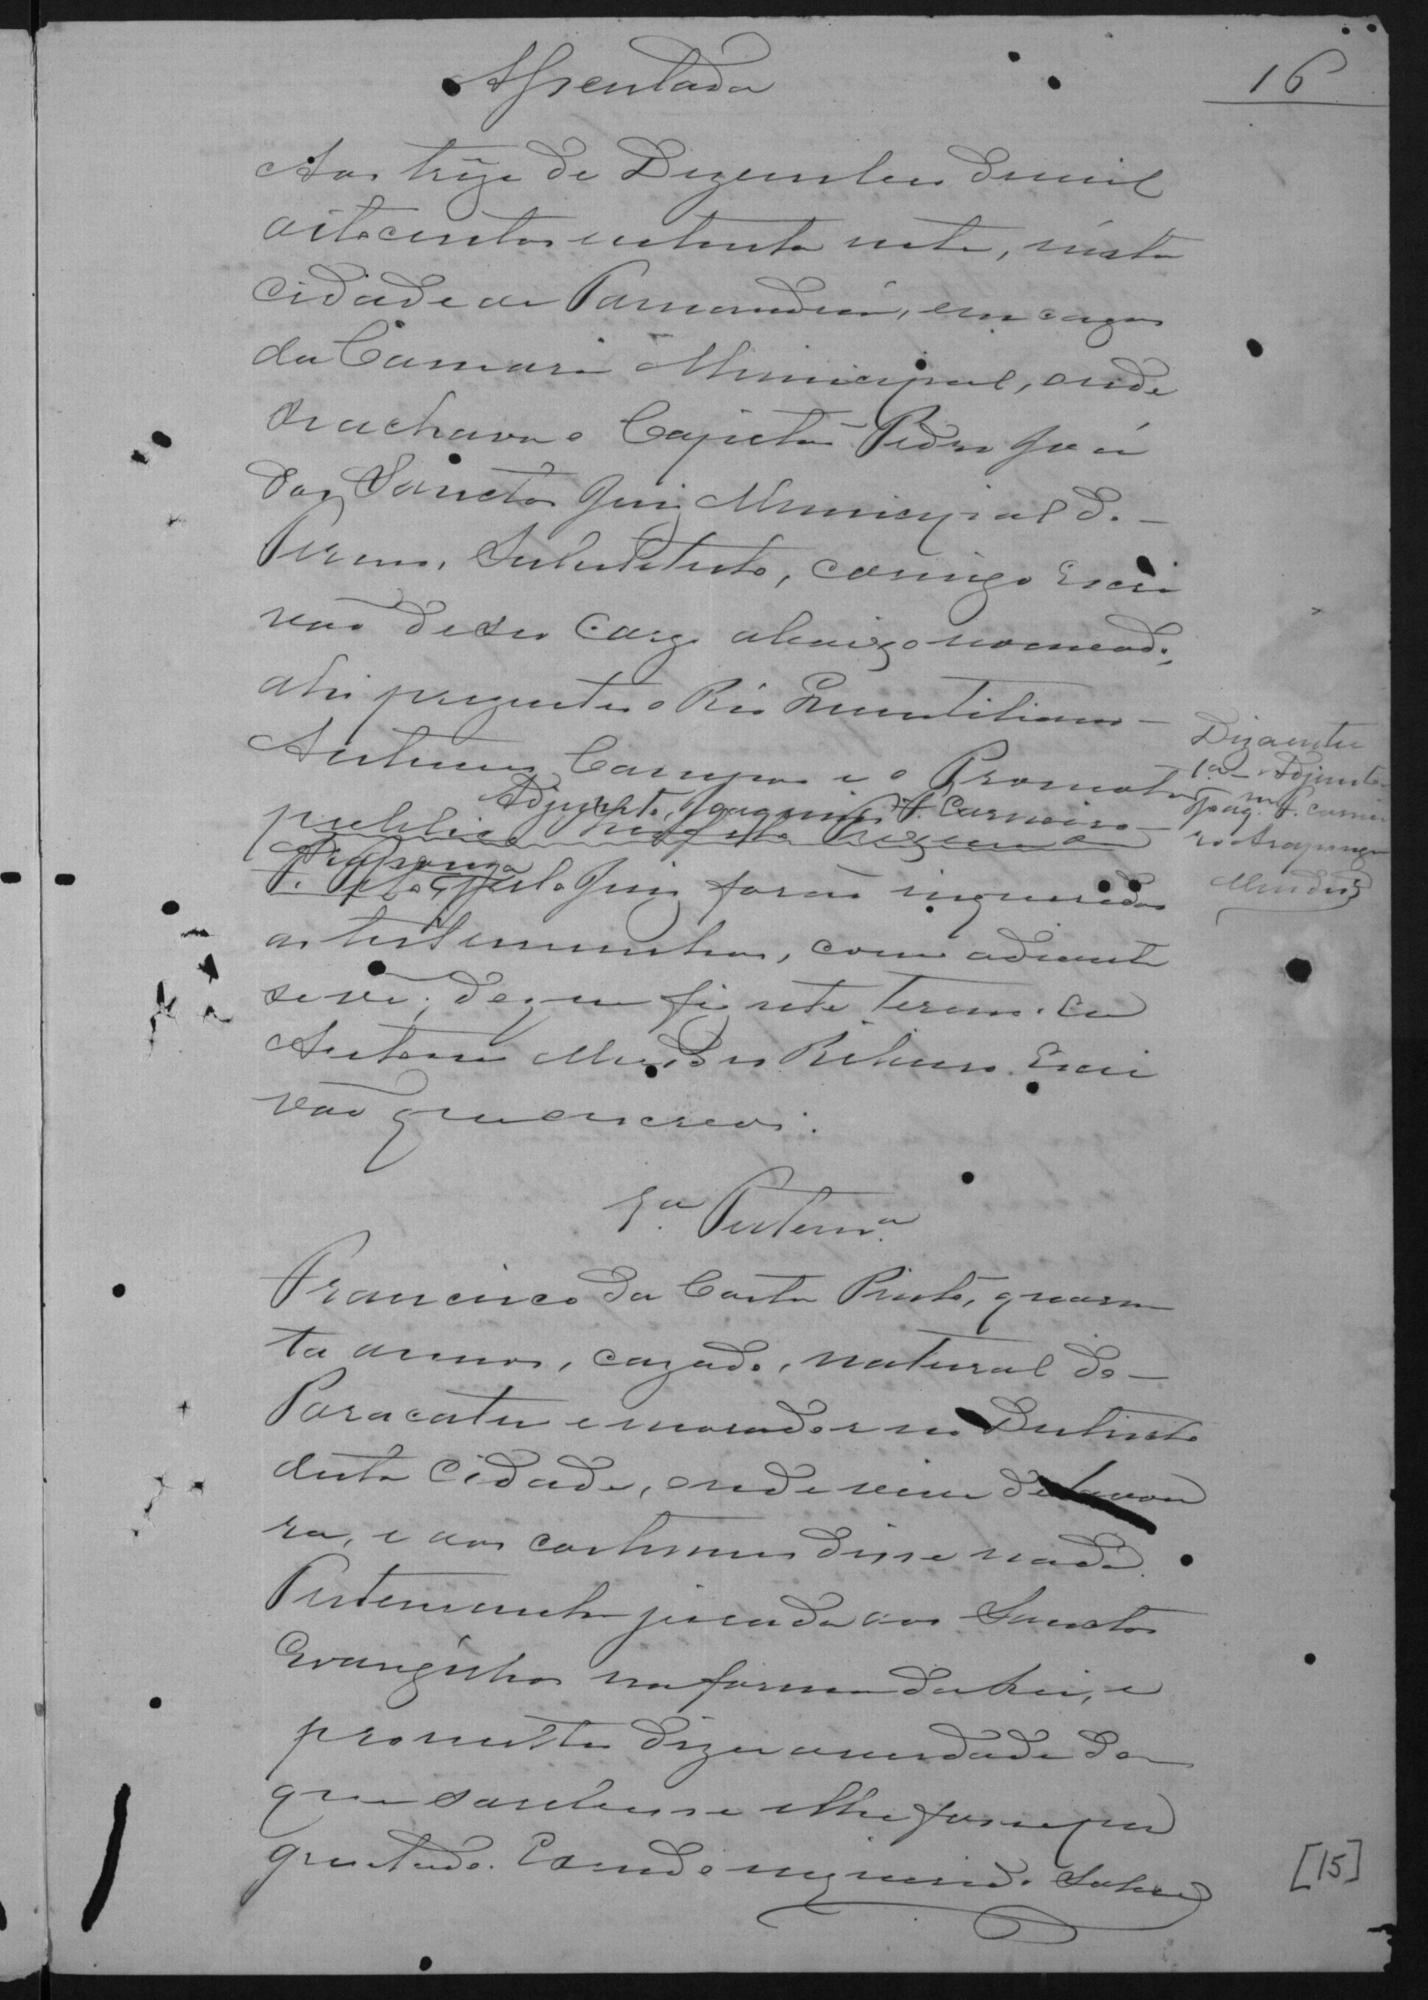 Assentada
16
Aos treze de Dezembro de mil
oitocentos e setenta e sete, nesta
cidade de em cazas
da Camara Municipal, onde
se achava o Capitão Pedro José
dos Sanctos Juiz Municipal do
Termo, Substituto, comigo Escri
vão de seu cargo abaixo nomeado,
ahi prezente o Réo Quintiliano
Antunes Campos e o Promotor
Adjuncto, Joaquim M. F. Carneiro
publico
pelo Juiz forão inqueridas
as testemunhas, como adiante
se vê; de que fiz este termo. Eu
Antonio Mendes Ribeiro Escri
vão que escrevi.
Diz a entre
1.a Adjuncto
Joaq. m F. Carnei
ro
Mendes
1.a Testem.a
Francisco da Costa Pinto, quaren
ta annos, cazado, natural do
Paracatu e morador no Destricto
desta Cidade, onde vive de lavou
ra, e aos costumes disse nada.
Testemunha jurada aos Sanctos
Evangelhos na forma da Lei, e
prometteu dizer a verdade do
que soubesse e lhe fosse per
guntado. E sendo inquirido sobre
[15]